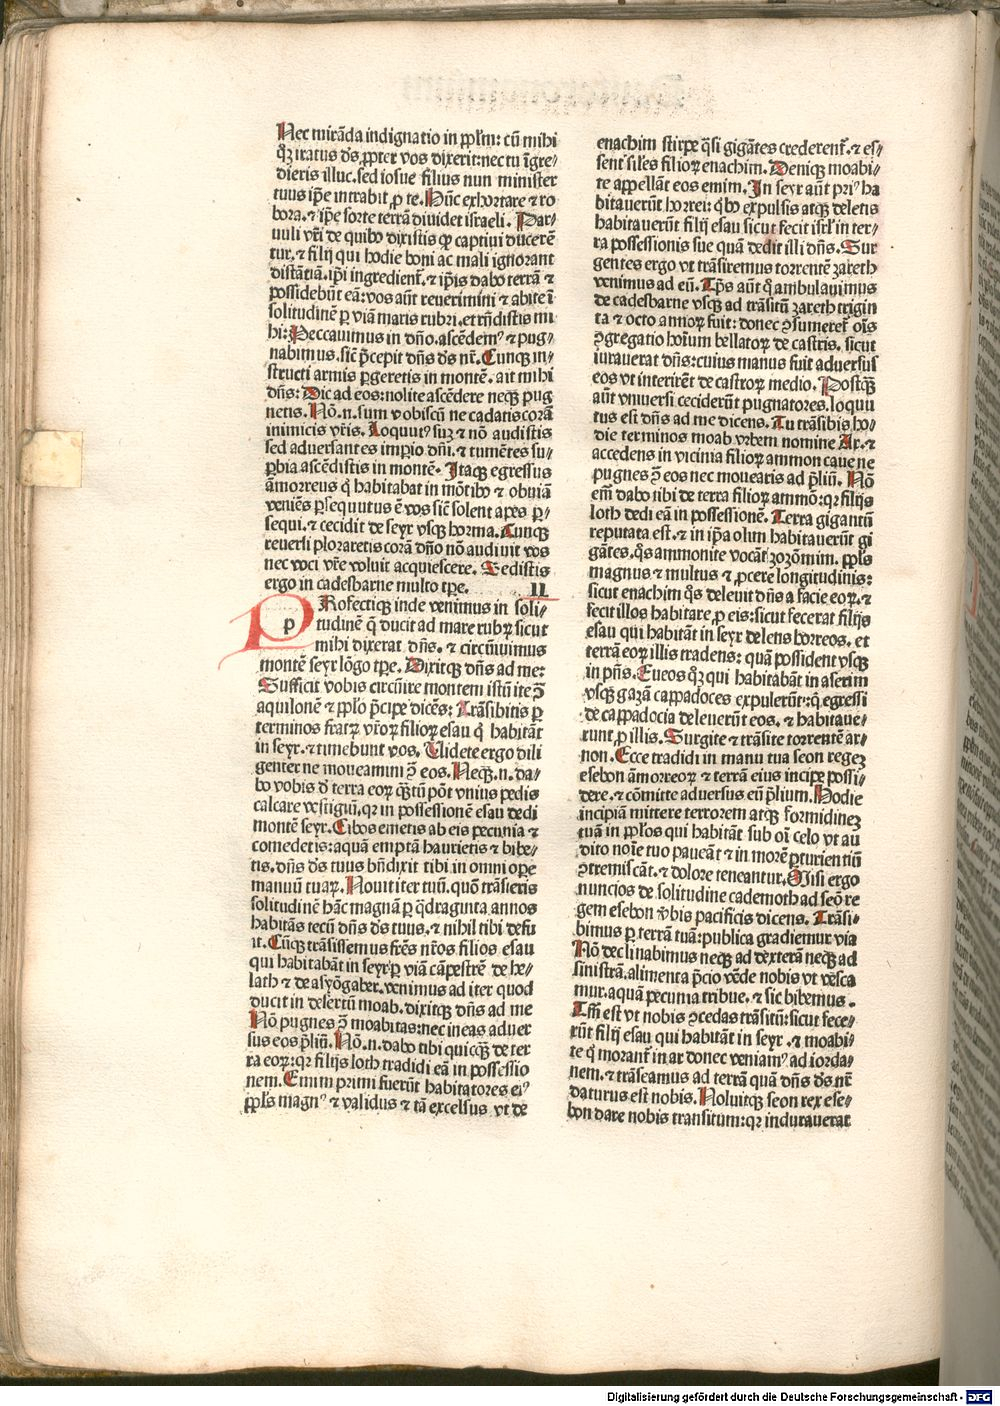 Nec mirãda indignatio in ppl̃m: cũ mihi
qq̃ iratus dñs ppter vos dixerit: nec tu ĩgre⸗
dieris illuc. sed iosue filius nun minister
tuus ip̃e intrabit p te. Hũc exhortare ⁊ ro
bora. ⁊ ip̃e sorte terrã diuidet israeli. Par⸗
uuli vr̃i de quibꝰ dixistis ꝙ captiui ducerẽ
tur. ⁊ filij qui hodie boni ac mali ignorant
distãtiã. ip̃i ingredient᷑. ⁊ ip̃is dabo terrã ⁊
possidebũt eã: vos aũt reuertimini ⁊ abite ĩ
solitudinẽ ꝑ viã maris rubri. et rñdistis mi
hi: Peccauimus in dño. ascẽdemꝰ ⁊ pug⸗
nabimus. sic̃ p̃cepit dñs ds̃ nr̃. Cunqꝫ in⸗
structi armis ꝑgeretis in montẽ. ait mihi
dñs: Dic ad eos: nolite ascẽdere neqꝫ pug
netis. Nõ.n. sum vobiscũ ne cadatis corã
inimicis vr̃is. Loquutꝰ suꝫ ⁊ nõ audistis
sed aduersantes imp̃io dñi. ⁊ tumẽtes su⸗
ꝑbia ascẽdistis in montẽ. Itaqꝫ egressus
amorreus q̃ habitabat in mõtibꝰ ⁊ obuiã
veniẽs ꝑsequutus ẽ vos sic̃ solent apes ꝑ⸗
sequi. ⁊ cecidit de seyr vsqꝫ horma. Cunqꝫ
reuersi ploraretis corã dño nõ audiuit vos
nec voci vr̃e voluit acquiescere. Sedistis
ergo in cadesbarne multo tp̃e. II
PRofectiqꝫ inde venimus in soli⸗
p tudinẽ q̃ ducit ad mare rubꝝ sicut
mihi dixerat dñs. ⁊ circũiuimus
montẽ seyr lõgo tp̃e. Dixitqꝫ dñs ad me:
Sufficit vobis circũire montem istũ ite ↄ̃
aquilonẽ ⁊ pplo p̃cipe dicẽs: Trãsibitis ꝑ
terminos fratꝝ vr̃oꝝ filioꝝ esau q̃ habitãt
in seyr. ⁊ timebunt vos. Uidete ergo dili
genter ne moueamini ↄ̃ eos. Neqꝫ.n. da⸗
bo vobis d̃ terra eoꝝ q̃tũ põt vnius pedis
calcare vestigiũ. qꝛ in possessionẽ esau dedi
montẽ seyr. Cibos emetis ab eis pecunia ⁊
comedetis: aquã emptã haurietis ⁊ bibe⸗
tis. dñs ds̃ tuus bñdixit tibi in omni ope
manuũ tuaꝝ. Nouit iter tuũ. quõ trãsieris
solitudinẽ hãc magnã ꝑ q̃draginta annos
habitãs tecũ dñs ds̃ tuus. ⁊ nihil tibi defu
it. Cũqꝫ trãsissemus fr̃es nr̃os filios esau
qui habitabãt in seyr ꝑ viã cãpestrẽ de he⸗
lath ⁊ de asyõgaber. venimus ad iter quod
ducit in desertũ moab. dixitqꝫ dñs ad me
Nõ pugnes ↄ̃ moabitas: nec ineas aduer
sus eos p̃liũ. Nõ.n. dabo tibi quicq̃ de ter
ra eoꝝ: qꝛ filijs loth tradidi eã in possessio
nem. Emim primi fuerũt habitatores eiꝰ
ppl̃s magnꝰ ⁊ validus ⁊ tã excelsus vt de
enachim stirpe q̃si gigãtes crederent᷑. ⁊ es⸗
sent sil̃es filioꝝ enachim. Deniqꝫ moabi⸗
te appellãt eos emim. In seyr aũt priꝰ ha
bitauerũt horrei: q̃bꝰ expulsis atqꝫ deletis
habitauerũt filij esau sicut fecit isrl̃ in ter⸗
ra possessionis sue quã dedit illi dñs. Sur
gentes ergo vt trãsiremus torrentẽ zareth
venimus ad eũ. Tp̃s aũt q̃ ambulauimus
de cadesbarne vsqꝫ ad trãsitũ zareth trigin
ta ⁊ octo annoꝝ fuit: donec ↄ̃sumeret᷑ oĩs
ↄ̃gregatio hoĩum bellatoꝝ de castris. sicut
iurauerat dñs: cuius manus fuit aduersus
eos vt interirẽt de castroꝝ medio. Postqꝫ̃
aũt vniuersi ceciderũt pugnatores. loquu
tus est dñs ad me dicens. Tu trãsibis ho⸗
die terminos moab vrbem nomine Ar. ⁊
accedens in vicinia filioꝝ ammon caue ne
pugnes ↄ̃ eos nec mouearis ad p̃liũ. Nõ
em̃ dabo tibi de terra filioꝝ ammõ: qꝛ filijs
loth dedi eã in possessionẽ. Terra gigantũ
reputata est. ⁊ in ip̃a olim habitauerũt gi
gãtes. q̃s ammonite vocãt zozõmim. ppl̃s
magnus ⁊ multus ⁊ ꝓcere longitudinis:
sicut enachim q̃s deleuit dñs a facie eoꝝ. ⁊
fecit illos habitare ꝓ eis: sicut fecerat filijs
esau qui habitãt in seyr delens horreos. et
terrã eoꝝ illis tradens: quã possident vsqꝫ
in pñs. Eueos qꝫ qui habitabãt in aserim
vsqꝫ gazã cappadoces expulerũt: q̃ egressi
de cappadocia deleuerũt eos. ⁊ habitaue⸗
runt ꝓ illis. Surgite ⁊ trãsite torrentẽ ar⸗
non. Ecce tradidi in manu tua seon regeꝫ
esebon ãmorreoꝝ ⁊ terrã eius incipe possi⸗
dere. ⁊ cõmitte aduersus eũ p̃lium. Hodie
incipiã mittere terrorem atqꝫ formidineꝫ
tuã in pplos qui habitãt sub oĩ celo vt au
dito noĩe tuo paueãt ⁊ in morẽ ꝑturientiũ
ↄ̃tremiscãt. ⁊ dolore teneantur. Misi ergo
nuncios de solitudine cademoth ad seõ re
gem esebon v̾bis pacificis dicens. Trãsi⸗
bimus ꝑ terrã tuã: publica gradiemur via
Nõ declinabimus neqꝫ ad dexterã neqꝫ ad
sinistrã. alimenta p̃cio vẽde nobis vt vesca
mur. aquã pecunia tribue. ⁊ sic bibemus.
Tm̃ est vt nobis ↄ̃cedas trãsitũ: sicut fece⸗
rũt filij esau qui habitãt in seyr. ⁊ moabi⸗
te q̃ morant᷑ in ar donec veniamꝰ ad iorda⸗
nem. ⁊ trãseamus ad terrã quã dñs ds̃ nr̃
daturus est nobis. Noluitqꝫ seon rex ese⸗
bon dare nobis transitum: qꝛ indurauerat
Digitalisierung gefördert durch die Deutsche Forschungsgemeinschaft - DFG